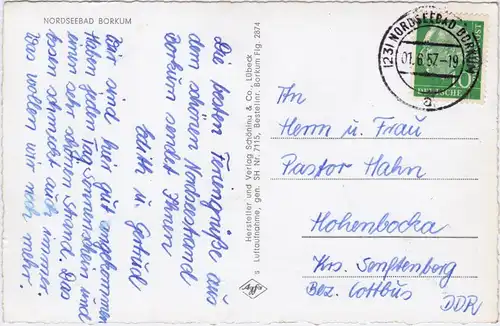 NORDSEEBAD BORKUM
Die besten Feriengrüße aus
dem schönen Nordseestrand
Borkum sendet Ihnen
Edith u. Gertud
Wir sind hier gut angekommen.
Haben jeden Tag Sonnenschein und
einen sehr schönen Strand. Das
Essen schmeckt auch immer.
Was wollen wir noch mehr.
Hersteller und Verlag Schöning & Co., Lübeck
s Luftaufnahme, gen. SH Nr. 7115, Bestellnr. Borkum Flg. 2874
Agfa
(23) NORDSEEBAD BORKUM
01.6.57-19
a
10
DEUTSCHE
POST
An
Herrn u. Frau
Pastor Hahn
Hohenbocka
Krs. Senftenberg
Bez. Cottbus
DDR